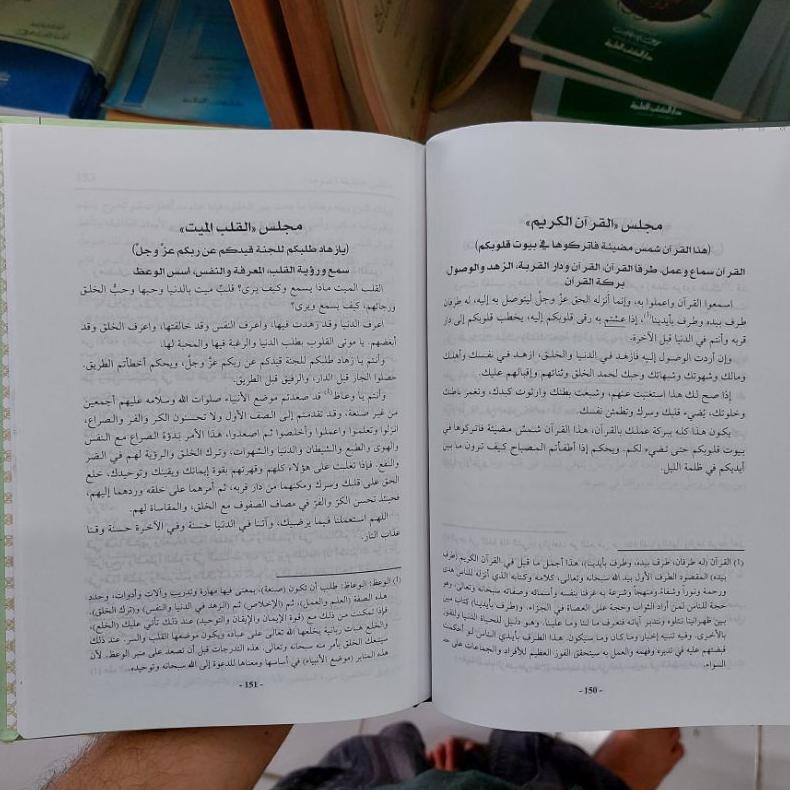 مجلس «القرآن الكريم»
(هذا القرآن شمس مضيئة فاتركوها في بيوت قلوبكم)
القرآن سماع وعمل، طرفا القرآن، القرآن ودار القربة، الزهد والوصول
بركة القرآن
اسمعوا القرآن واعملوا به، وإنما أنزله الحق عزَّ وجلَّ ليتوصل به إليه، له طرفان
طرف بيده وطرف بأيدينا(١)، إذا عملتم به رقى قلوبكم إليه، يخطب قلوبكم إلى دار
قربه وأنتم في الدنيا قبل الآخرة.
وإن أردت الوصول إليه فازهد في الدنيا والخلق، ازهد في نفسك وأهلك
ومالك وشهوتك وشبهاتك وحبك لحمد الخلق وثنائهم وإقبالهم عليك.
إذا صح لك هذا استغنيت عنهم، وشبعت بطنك وارتوت كبدك، وتعمَّر باطنك
وخلوتك، يُضيء قلبك وسرك وتطمئن نفسك.
يكون هذا كله ببركة عملك بالقرآن، هذا القرآن شمسٌ مضيئة فاتركوها في
بيوت قلوبكم حتى تضيء لكم. ويحكم إذا أطفأتم المصباح كيف ترون ما بين
أيديكم في ظلمة الليل.
(١) القرآن (له طرفان، طرف بيده، وطرف بأيدينا)، هذا أجمل ما قيل في القرآن الكريم (طرف
بيده) المقصود الطرف الأول بيد الله سبحانه وتعالى، كلامه وكتابه الذي أنزله للناس هدى
ورحمة ونوراً وشفاءً ومنهجاً وشرعة به عرفنا نفسه وأسمائه وصفاته سبحانه وتعالى، وهو
حجة للناس لمن أراد الثواب وحجة على العصاة في الجزاء. (وطرف بأيدينا) كتاب مبين
بين ظهرانينا نتلوه ونتدبر آياته فنعرف ما لنا وما علينا. وهو دليل للحياة الدنيا وللفوز
بالأخرى. وفيه تنبيه إخبار وما كان وما سيكون. هذا الطرف بأيدي الناس لو أحكمت
قبضتهم عليه في تدبره وفهمه والعمل به سيتحقق الفوز العظيم للأفراد والجماعات على حد
السواء.
- 150 -
مجلس «القلب الميت»
(يا زهاد طلبكم للجنة قيدكم عن ربكم عزَّ وجلَّ)
سمع ورؤية القلب، المعرفة والنفس، أسس الوعظ
القلب الميت ماذا يسمع وكيف يرى؟ قلبٌ ميت بالدنيا وحبها وحبُّ الخلق
ورجائهم، كيف يسمع ويرى؟
اعرف الدنيا وقد زهدت فيها، واعرف النفس وقد خالفتها، واعرف الخلق وقد
أبغضتهم. يا موتى القلوب بطلب الدنيا والرغبة فيها والمحبة لها.
وأنتم يا زهَّاد طلبكم للجنة قيدكم عن ربكم عزَّ وجلَّ، ويحكم أخطأتم الطريق.
حصلوا الجار قبل الدار، والرفيق قبل الطريق.
وأنتم يا وعاظ(١) قد صعدتم موضع الأنبياء صلوات الله وسلامه عليهم أجمعين
من غير صنعة، وقد تقدمتم إلى الصف الأول ولا تحسنون الكر والفر والصراع،
انزلوا وتعلموا واعملوا وأخلصوا ثم اصعدوا، هذا الأمر بدؤه الصراع مع النفس
والهوى والطبع والشيطان والدنيا والشهوات، وترك الخلق والرؤية لهم في الضر
والنفع. فإذا تغلبت على هؤلاء كلهم وقهرتهم بقوة إيمانك ويقينك وتوحيدك، خلع
الحق على قلبك وسرك ومكنهما من دار قربه، ثم أمرهما على خلقه وردهما إليهم،
فحينئذ تحسن الكرَّ والفرَّ في مصاف الصفوف مع الخلق، والمقاساة لهم.
اللهم استعملنا فيما يرضيك، وآتنا في الدنيا حسنة وفي الآخرة حسنة وقنا
عذاب النار.
(١) الوعظ: الوعاظ: طلب أن تكون (صنعة)، بمعنى فيها مهارة وتدريب وآلات وأدوات، وحدد
هذه الصفة (العلم والعمل)، ثم (الإخلاص) ثم (الزهد في الدنيا والنفس) و(ترك الخلق).
فإذا تمكنت من ذلك مع (قوة الإيمان والإيقان والتوحيد) عند ذلك تأتي عليك (الخلع)،
والخلع هبات ربانية يخلعها الله تعالى على عباده ويكون موضعها القلب والسر. عند ذلك
سيتعك الخلق بأمر منه سبحانه وتعالى. هذه التدرجات قبل أن تصعد على منبر الوعظ. لأن
هذه المنابر (موضع الأنبياء) في أساسها ومعناها للدعوة إلى الله سبحانه وتعالى وتوحيده.
- 151 -